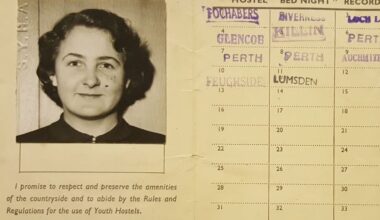 HOSTEL BED NIGHT RECORD
FOCHABERS INVERNESS LOCH L
GLENCOE KILLIN PERTH
PERTH PERTH
FEUGHSIDE LUMSDEN
14 15
17 18
20 21
22 23 24
25 26 27
28 29 30
31 32 33
S.Y.H.A
I promise to respect and preserve the amenities
of the countryside and to abide by the Rules and
Regulations for the use of Youth Hostels.